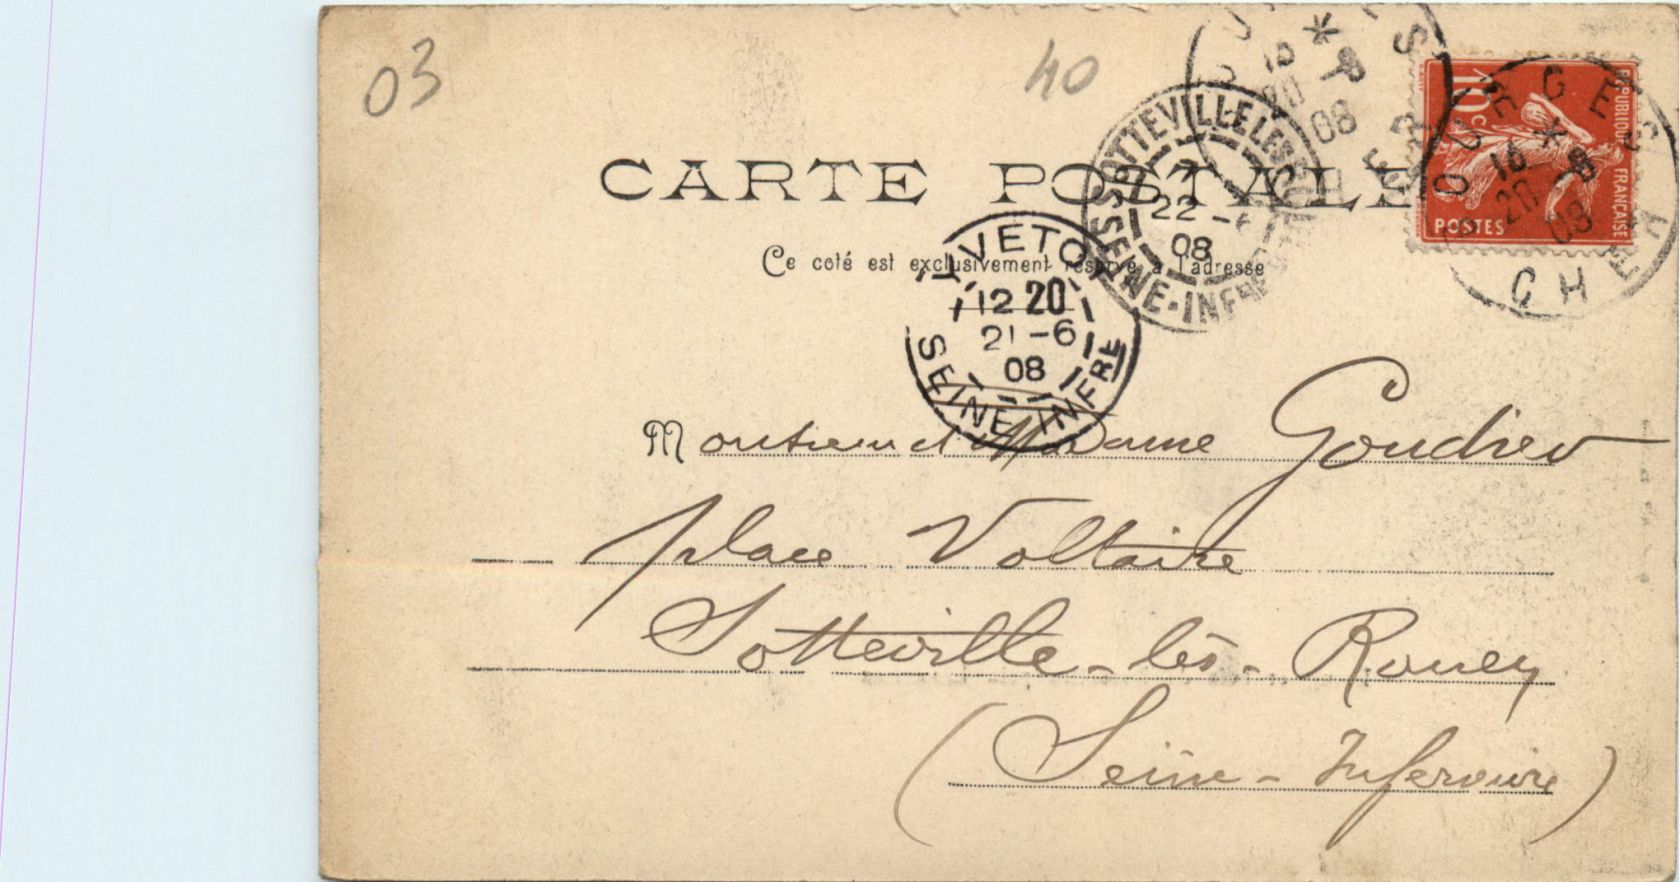 03
40
CARTE POSTALE
Ce coté est exclusivement réservé à l'adresse
RÉPUBLIQUE FRANÇAISE
10c
POSTES
BOURGES
16 *
20 - 6
08
CHER
BOURGES
16 *
20
08
CHER
SOTTEVILLE LES ROUEN
7
22 - 6
08
SEINE-INFRE
YVETOT
12 20
21 - 6
08
SEINE INFRE
Monsieur et Madame Goudier
place Voltaire
Sotteville-lès-Rouen
(Seine-Inférieure)